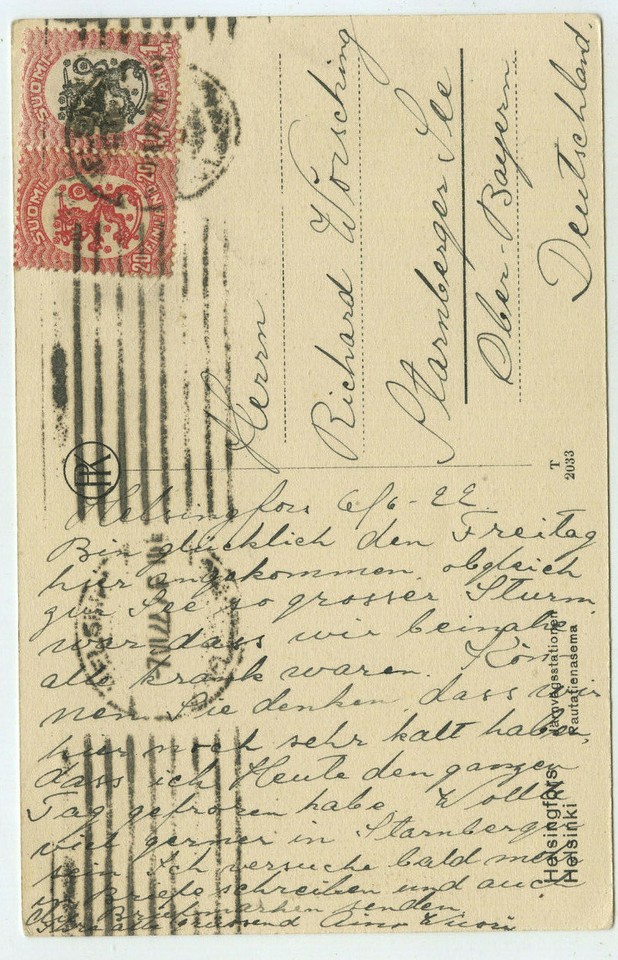 SUOMI 1 MARKKAA
SUOMI 20 PENNIÄ 20
Herrn
Richard Worsching
Starnberger See
Ober-Bayern
Deutschland.
T
2033
Helsingfors 6/6-22
Bin glücklich den Freitag
hier angekommen, obgleich
zur See so grosser Sturm
war dass wir beinahe
alle krank waren. Kön
nen Sie denken, dass wir
hier noch sehr kalt haben,
dass ich Heute den ganzen
Tag gefroren habe. Wollte
viel gerner in Starnberger
sein. Ich versuche bald mal
Briefe schreiben und auch
Briefmarken senden
alle grüssend Aino
Helsingfors Järnvägsstationen
Helsinki Rautatienasema